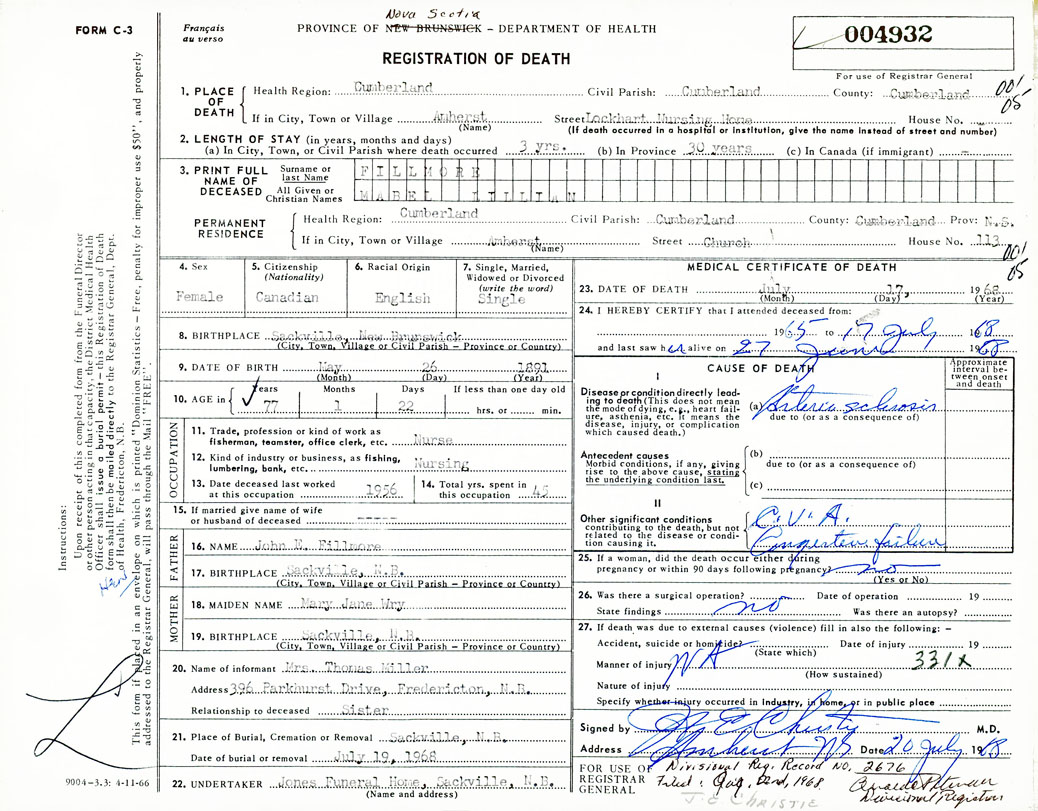 FORM C-3
Français
au verso
Nova Scotia
PROVINCE OF NEW BRUNSWICK – DEPARTMENT OF HEALTH
REGISTRATION OF DEATH
004932
For use of Registrar General
1. PLACE OF DEATH
Health Region: Cumberland Civil Parish: Cumberland County: Cumberland
001
05
If in City, Town or Village Amherst Street Lockhart Nursing Home House No. -
(Name) (If death occurred in a hospital or institution, give the name instead of street and number)
2. LENGTH OF STAY (in years, months and days)
(a) In City, Town, or Civil Parish where death occurred 3 yrs. (b) In Province 30 years (c) In Canada (if immigrant) -
3. PRINT FULL NAME OF DECEASED
Surname or last Name FILLMORE
All Given or Christian Names MABEL LILLIAN
PERMANENT RESIDENCE
Health Region: Cumberland Civil Parish: Cumberland County: Cumberland Prov: N.S.
If in City, Town or Village Amherst Street Church House No. 113
(Name)
001
05
4. Sex
Female
5. Citizenship
(Nationality)
Canadian
6. Racial Origin
English
7. Single, Married, Widowed or Divorced
(write the word)
Single
8. BIRTHPLACE Sackville, New Brunswick
(City, Town, Village or Civil Parish – Province or Country)
9. DATE OF BIRTH May 26 1891
(Month) (Day) (Year)
10. AGE in
Years Months Days If less than one day old
77 1 22 hrs. or min.
OCCUPATION
11. Trade, profession or kind of work as
fisherman, teamster, office clerk, etc. Nurse
12. Kind of industry or business, as fishing,
lumbering, bank, etc. Nursing
13. Date deceased last worked
at this occupation 1956
14. Total yrs. spent in
this occupation 45
15. If married give name of wife
or husband of deceased -----
FATHER
16. NAME John E. Fillmore
17. BIRTHPLACE Sackville, N.B.
(City, Town, Village or Civil Parish – Province or Country)
MOTHER
18. MAIDEN NAME Mary Jane Wry
19. BIRTHPLACE Sackville, N.B.
(City, Town, Village or Civil Parish – Province or Country)
20. Name of informant Mrs. Thomas Miller
Address 396 Parkhurst Drive, Fredericton, N.B.
Relationship to deceased Sister
21. Place of Burial, Cremation or Removal Sackville, N.B.
Date of burial or removal July 19, 1968
22. UNDERTAKER Jones Funeral Home, Sackville, N.B.
(Name and address)
MEDICAL CERTIFICATE OF DEATH
23. DATE OF DEATH July 17, 1968
(Month) (Day) (Year)
24. I HEREBY CERTIFY that I attended deceased from:
1965 to 17 July 1968
and last saw her alive on 27 June 1968
CAUSE OF DEATH
Approximate interval between onset and death
I
Disease or condition directly leading to death (This does not mean the mode of dying, e.g., heart failure, asthenia, etc. it means the disease, injury, or complication which caused death.)
(a) Arterio sclerosis
due to (or as a consequence of)
Antecedent causes
Morbid conditions, if any, giving rise to the above cause, stating the underlying condition last.
(b)
due to (or as a consequence of)
(c)
II
Other significant conditions contributing to the death, but not related to the disease or condition causing it.
C.V.A.
Congestive failure
25. If a woman, did the death occur either during
pregnancy or within 90 days following pregnancy? no
(Yes or No)
26. Was there a surgical operation? no Date of operation 19
State findings Was there an autopsy?
27. If death was due to external causes (violence) fill in also the following: –
Accident, suicide or homicide? Date of injury 19
(State which)
Manner of injury NA 331x
(How sustained)
Nature of injury
Specify whether injury occurred in Industry, in home, or in public place
Signed by J E Christie M.D.
Address Amherst NS Date 20 July 1968
FOR USE OF REGISTRAR GENERAL
Divisional Reg. Record No. 2676
Filed: Aug. 2nd, 1968.
Divisional Registrar
J. E. CHRISTIE
Instructions:
Upon receipt of this completed form from the Funeral Director
or other person acting in that capacity, the District Medical Health
Officer shall issue a burial permit – this Registration of Death
form shall then be mailed directly to the Registrar General, Dept.
of Health, Fredericton, N.B.
This form if placed in an envelope on which is printed "Dominion Statistics – Free, penalty for improper use $50", and properly
addressed to the Registrar General, will pass through the Mail "FREE".
9004-3.3: 4-11-66